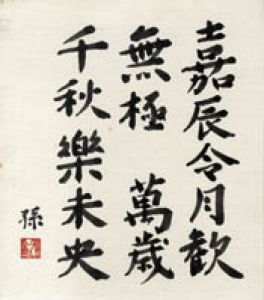 嘉辰令月歡
無極 萬歲
千秋樂未央
孫